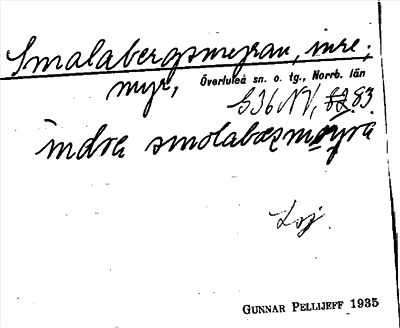 Smalabergsmyran, inre;
myr, Överluleå sn. o. tg., Norrb. län
G36 NV, 82 83.
indra smolabæsmȯyra
Lsj.
GUNNAR PELLIJEFF 1935